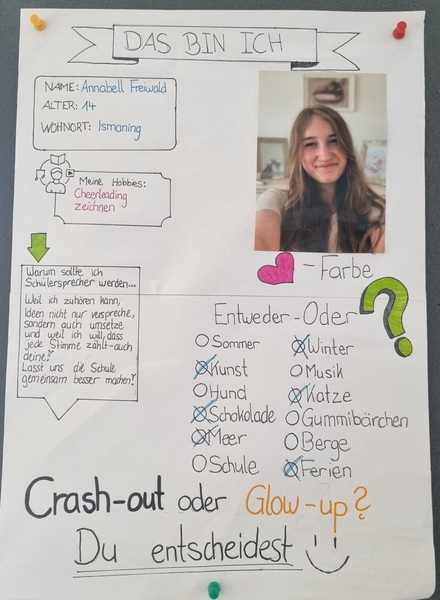 DAS BIN ICH
NAME: Annabell Freiwald
ALTER: 14
WOHNORT: Ismaning
Meine Hobbies:
Cheerleading
zeichnen
Warum sollte ich
Schülersprecher werden...
Weil ich zuhören kann,
Ideen nicht nur verspreche,
sondern auch umsetze
und weil ich will, dass
jede Stimme zählt-auch
deine!
Lasst uns die Schule
gemeinsam besser machen!
-Farbe
Entweder-Oder
Sommer Winter
Kunst Musik
Hund Katze
Schokolade Gummibärchen
Meer Berge
Schule Ferien
Crash-out oder Glow-up?
Du entscheidest